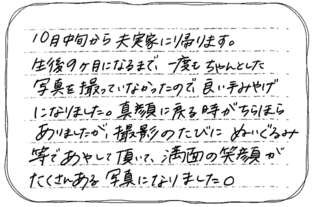 10月中旬から夫実家に帰ります。
生後9ヶ月になるまで、一度もちゃんとした
写真を撮っていなかったので良い手みやげ
になりました。真顔に戻る時がちらほら
ありましたが、撮影のたびに ぬいぐるみ
等であやして頂いて、満面の笑顔が
たくさんある写真になりました。